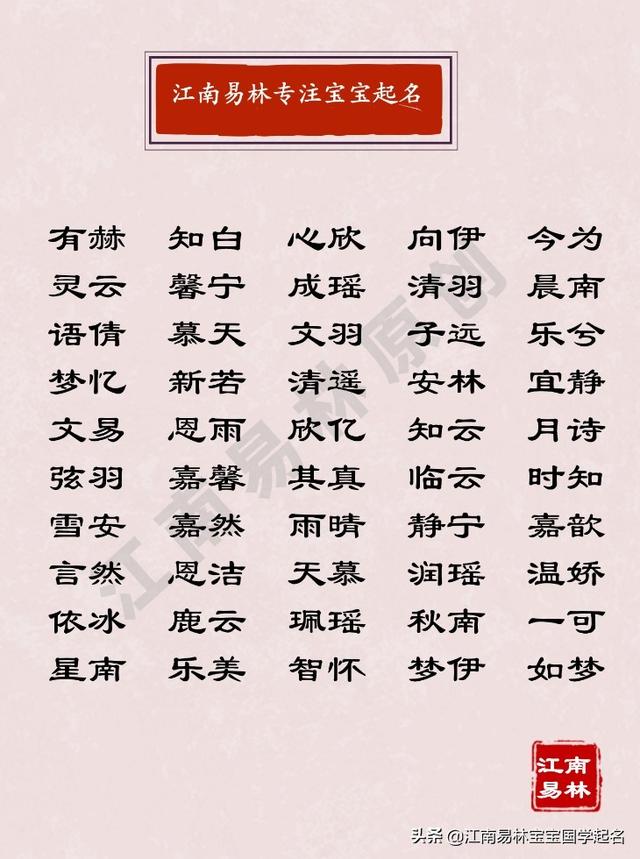 江南易林专注宝宝起名
有赫 知白 心欣 向伊 今为
灵云 馨宁 成瑶 清羽 晨南
语倩 慕天 文羽 子远 乐兮
梦忆 新若 清遥 安林 宜静
文易 恩雨 欣亿 知云 月诗
弦羽 嘉馨 其真 临云 时知
雪安 嘉然 雨晴 静宁 嘉歆
言然 恩洁 天慕 润瑶 温娇
依冰 鹿云 珮瑶 秋南 一可
星南 乐美 智怀 梦伊 如梦
江南易林原创
江南
易林
头条 @江南易林宝宝国学起名